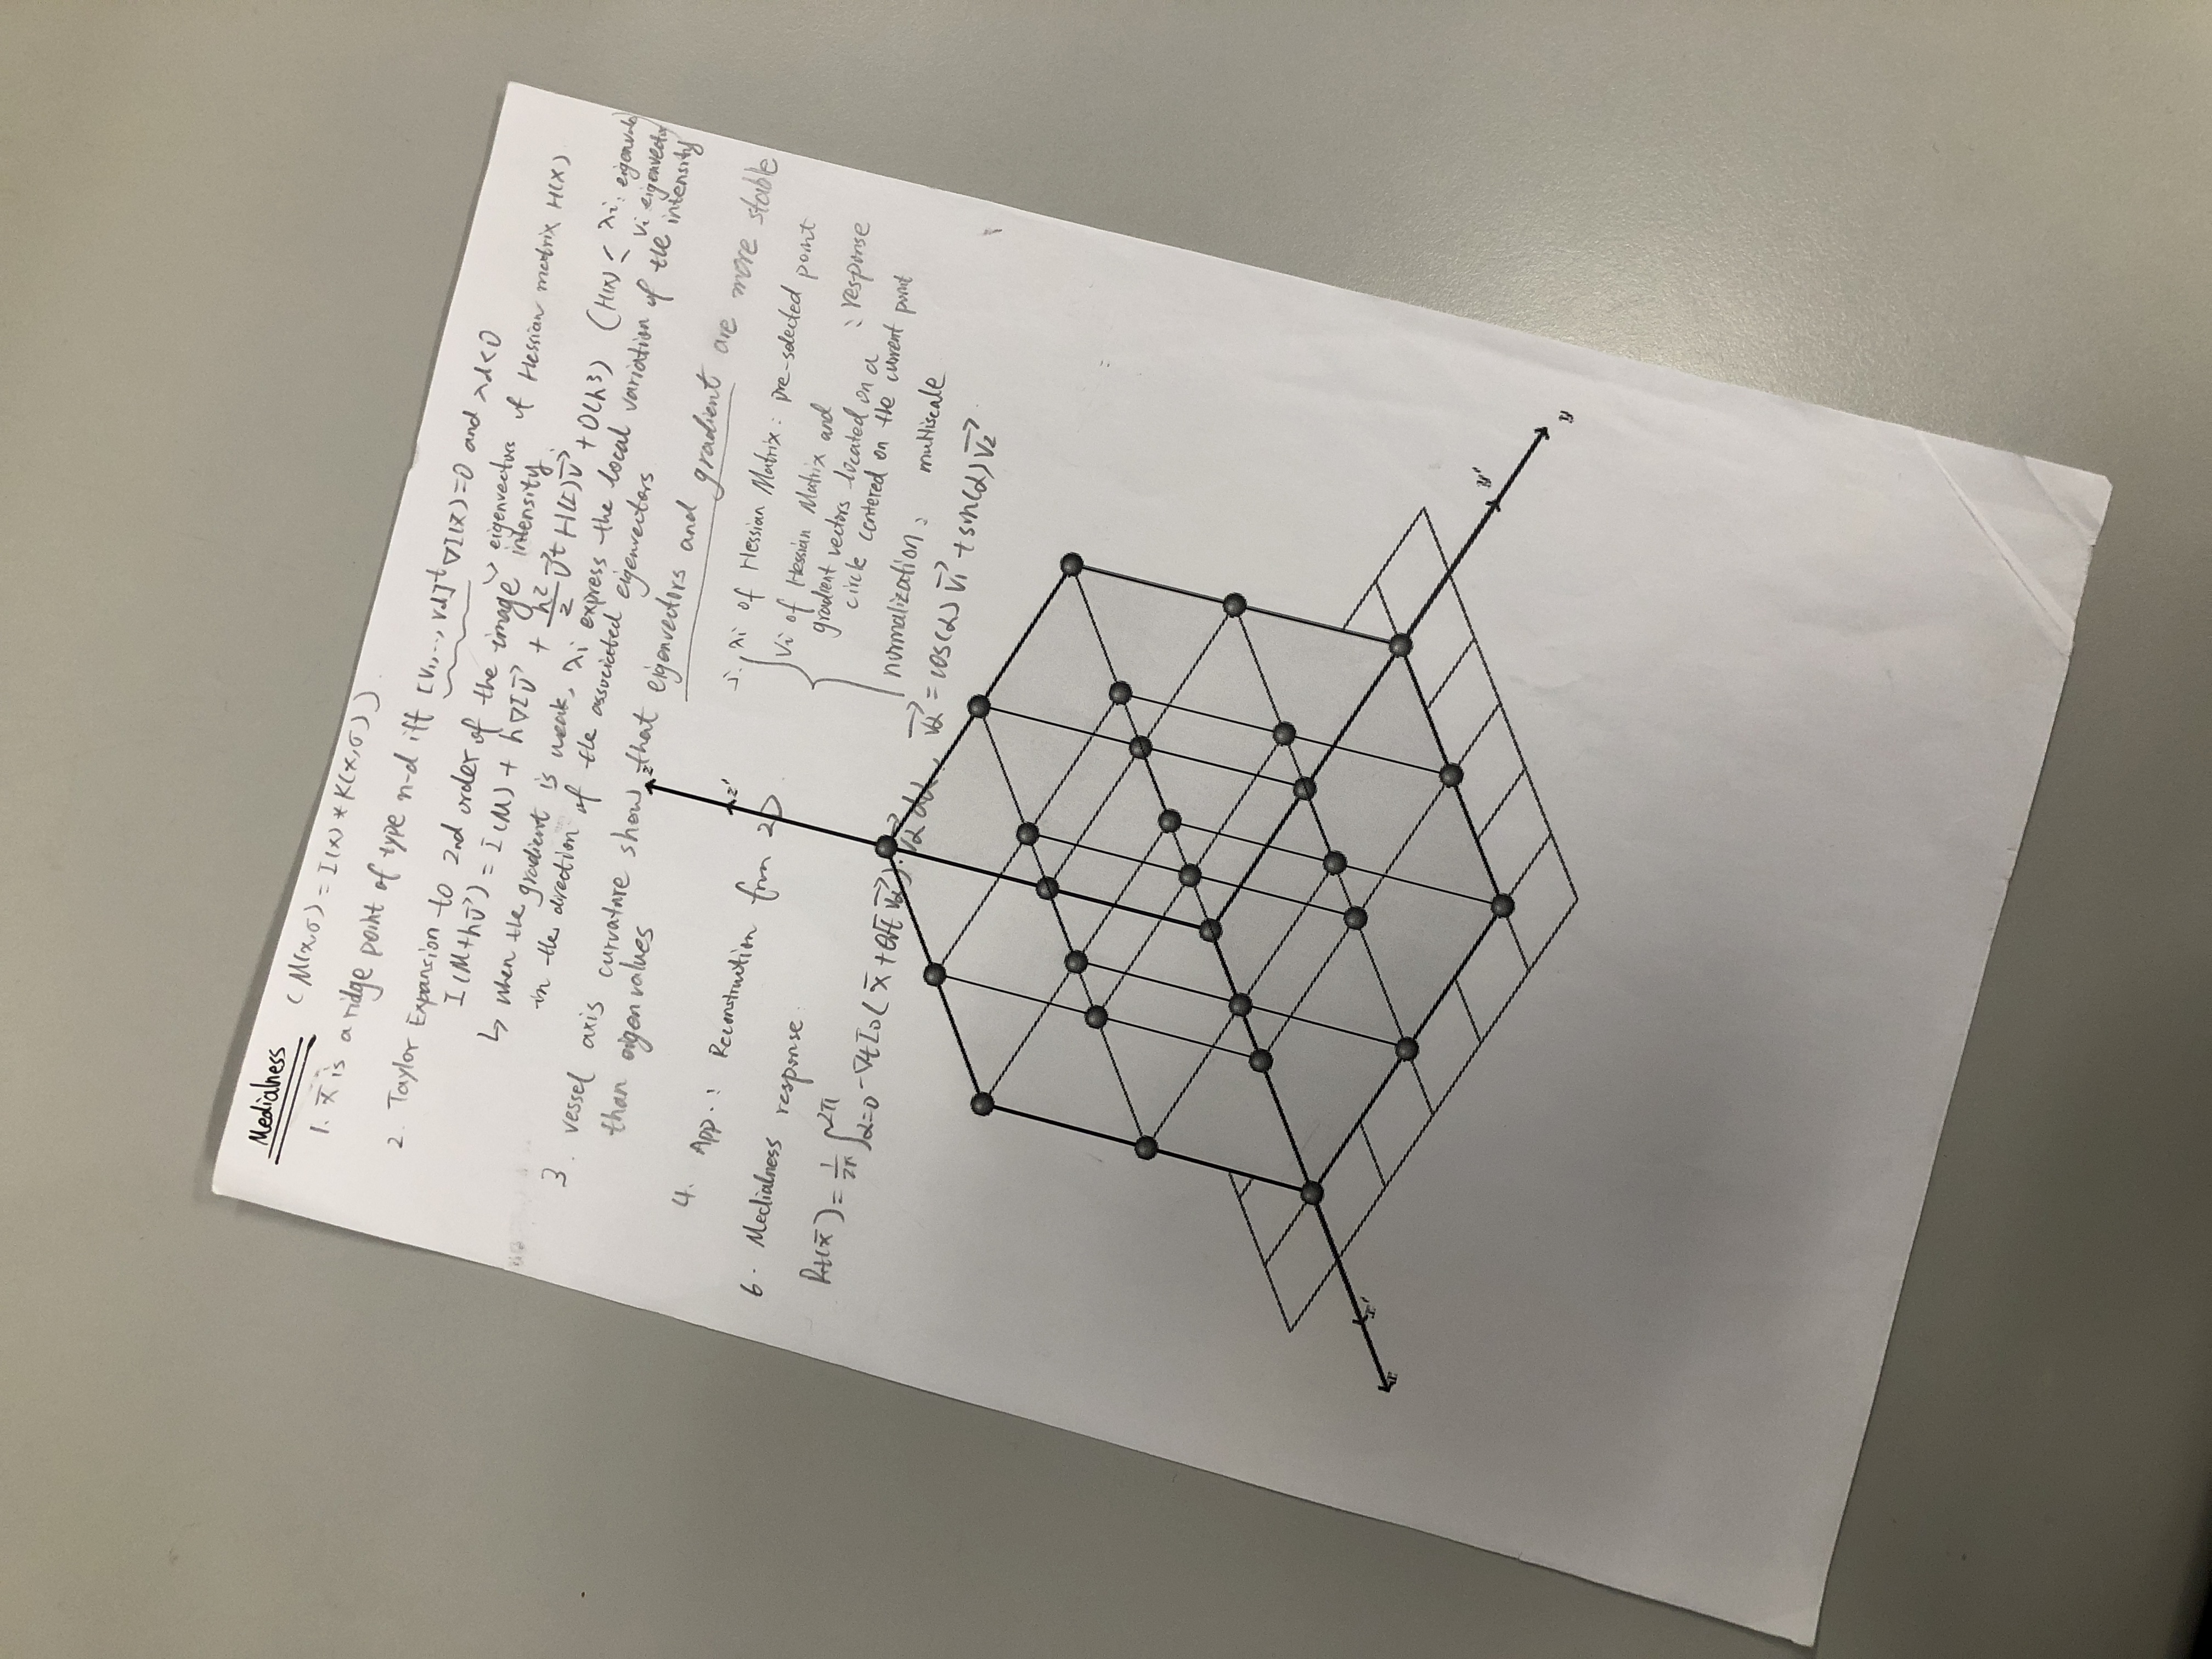 Medialness (M(x,σ) = I(x) * K(x,σ)).
1. x̄ is a ridge point of type n-d iff [V1,..., Vd]^t ∇I(x̄)=0 and λd<0
↳ eigenvectors of Hessian matrix H(x)
2. Taylor Expansion to 2nd order of the image intensity.
I(M+hv⃗) = I(M) + h∇Iv⃗ + h²/2 v⃗^t H(I)v⃗ + O(h³) (H(x) < λi: eigenvalue
Vi eigenvector
↳ when the gradient is weak, λi express the local variation of the intensity
in the direction of the associated eigenvectors
3. vessel axis curvature show that eigenvectors and gradient are more stable
than eigenvalues
4. App.: Reconstruction from 2D
5. λi of Hessian Matrix: pre-selected point
Vi of Hessian Matrix and
gradient vectors located on a : response
circle centered on the current point
normalization: multiscale
6. Medialness response
Rt(x̄) = 1/2π ∫α=0^2π -∇t I0(x̄ + θ√t v⃗α)·v⃗α dα, v⃗α = cos(α) v⃗1 + sin(α) v⃗2
z
z'
x'
x
y'
y